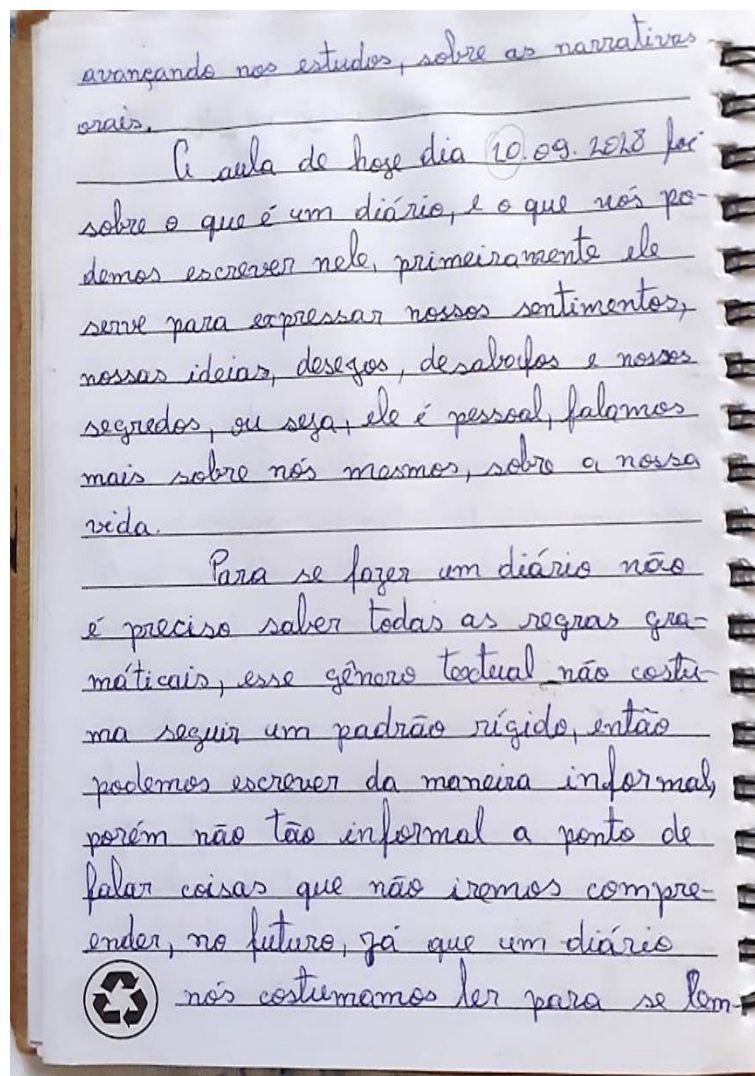 avançando nos estudos, sobre as narrativas
orais.
A aula de hoje dia 10.09.2028 foi
sobre o que é um diário, e o que nós po-
demos escrever nele, primeiramente ele
serve para expressar nossos sentimentos,
nossas ideias, desejos, desabafos e nossos
segredos, ou seja, ele é pessoal, falamos
mais sobre nós mesmos, sobre a nossa
vida.
Para se fazer um diário não
é preciso saber todas as regras gra-
máticais, esse gênero textual não costu-
ma seguir um padrão rígido, então
podemos escrever da maneira informal,
porém não tão informal a ponto de
falar coisas que não iremos compre-
ender, no futuro, já que um diário
nós costumamos ler para se lem-